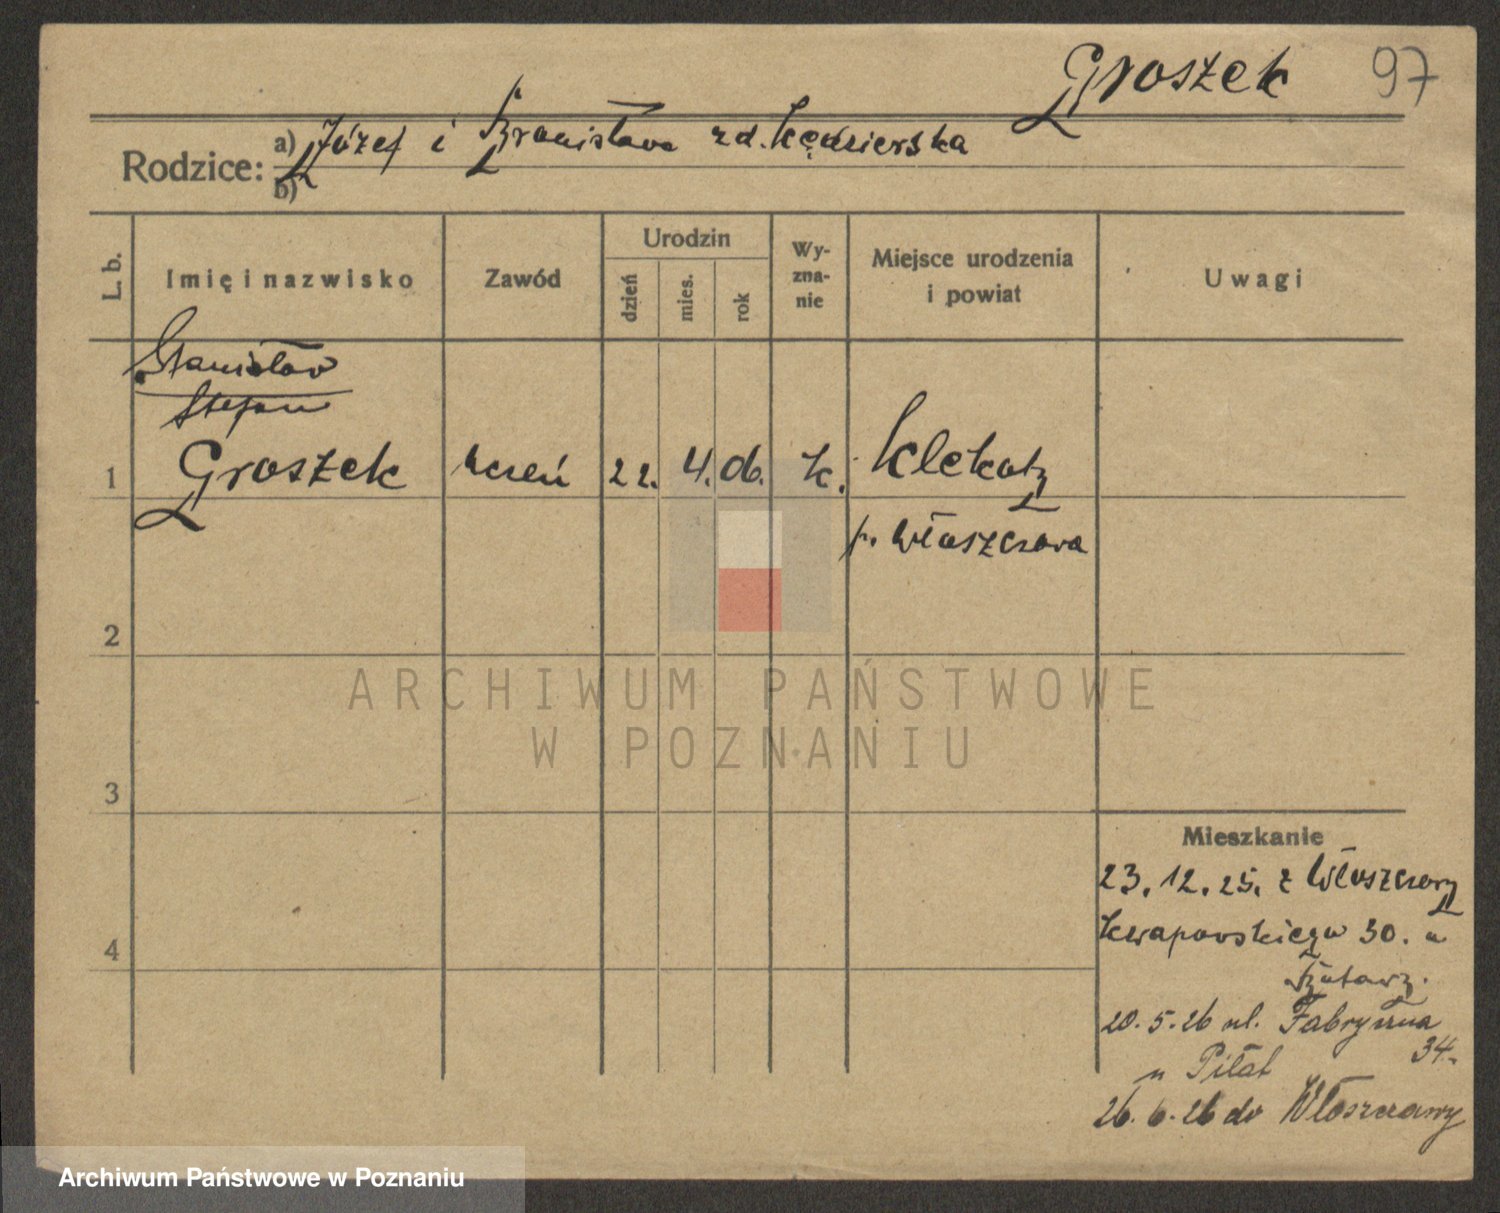 Groszek 97
Rodzice: a) Józef i Bronisława zd. Kędzierska
b)
L. b. Imię i nazwisko Zawód Urodzin dzień mies. rok Wy-zna-nie Miejsce urodzenia i powiat Uwagi
Stanisław
Stefan
1 Groszek uczeń 22. 4. 06. k. Klekoty
p. Włoszczowa
2
ARCHIWUM PAŃSTWOWE
W POZNANIU
3
Mieszkanie
23.12.25. z Włoszczowy
Kwapowskiego 30. u
4
20.5.26 ul. Fabryczna
34.
u Piłat
26.6.26 do Włoszczowy
Archiwum Państwowe w Poznaniu